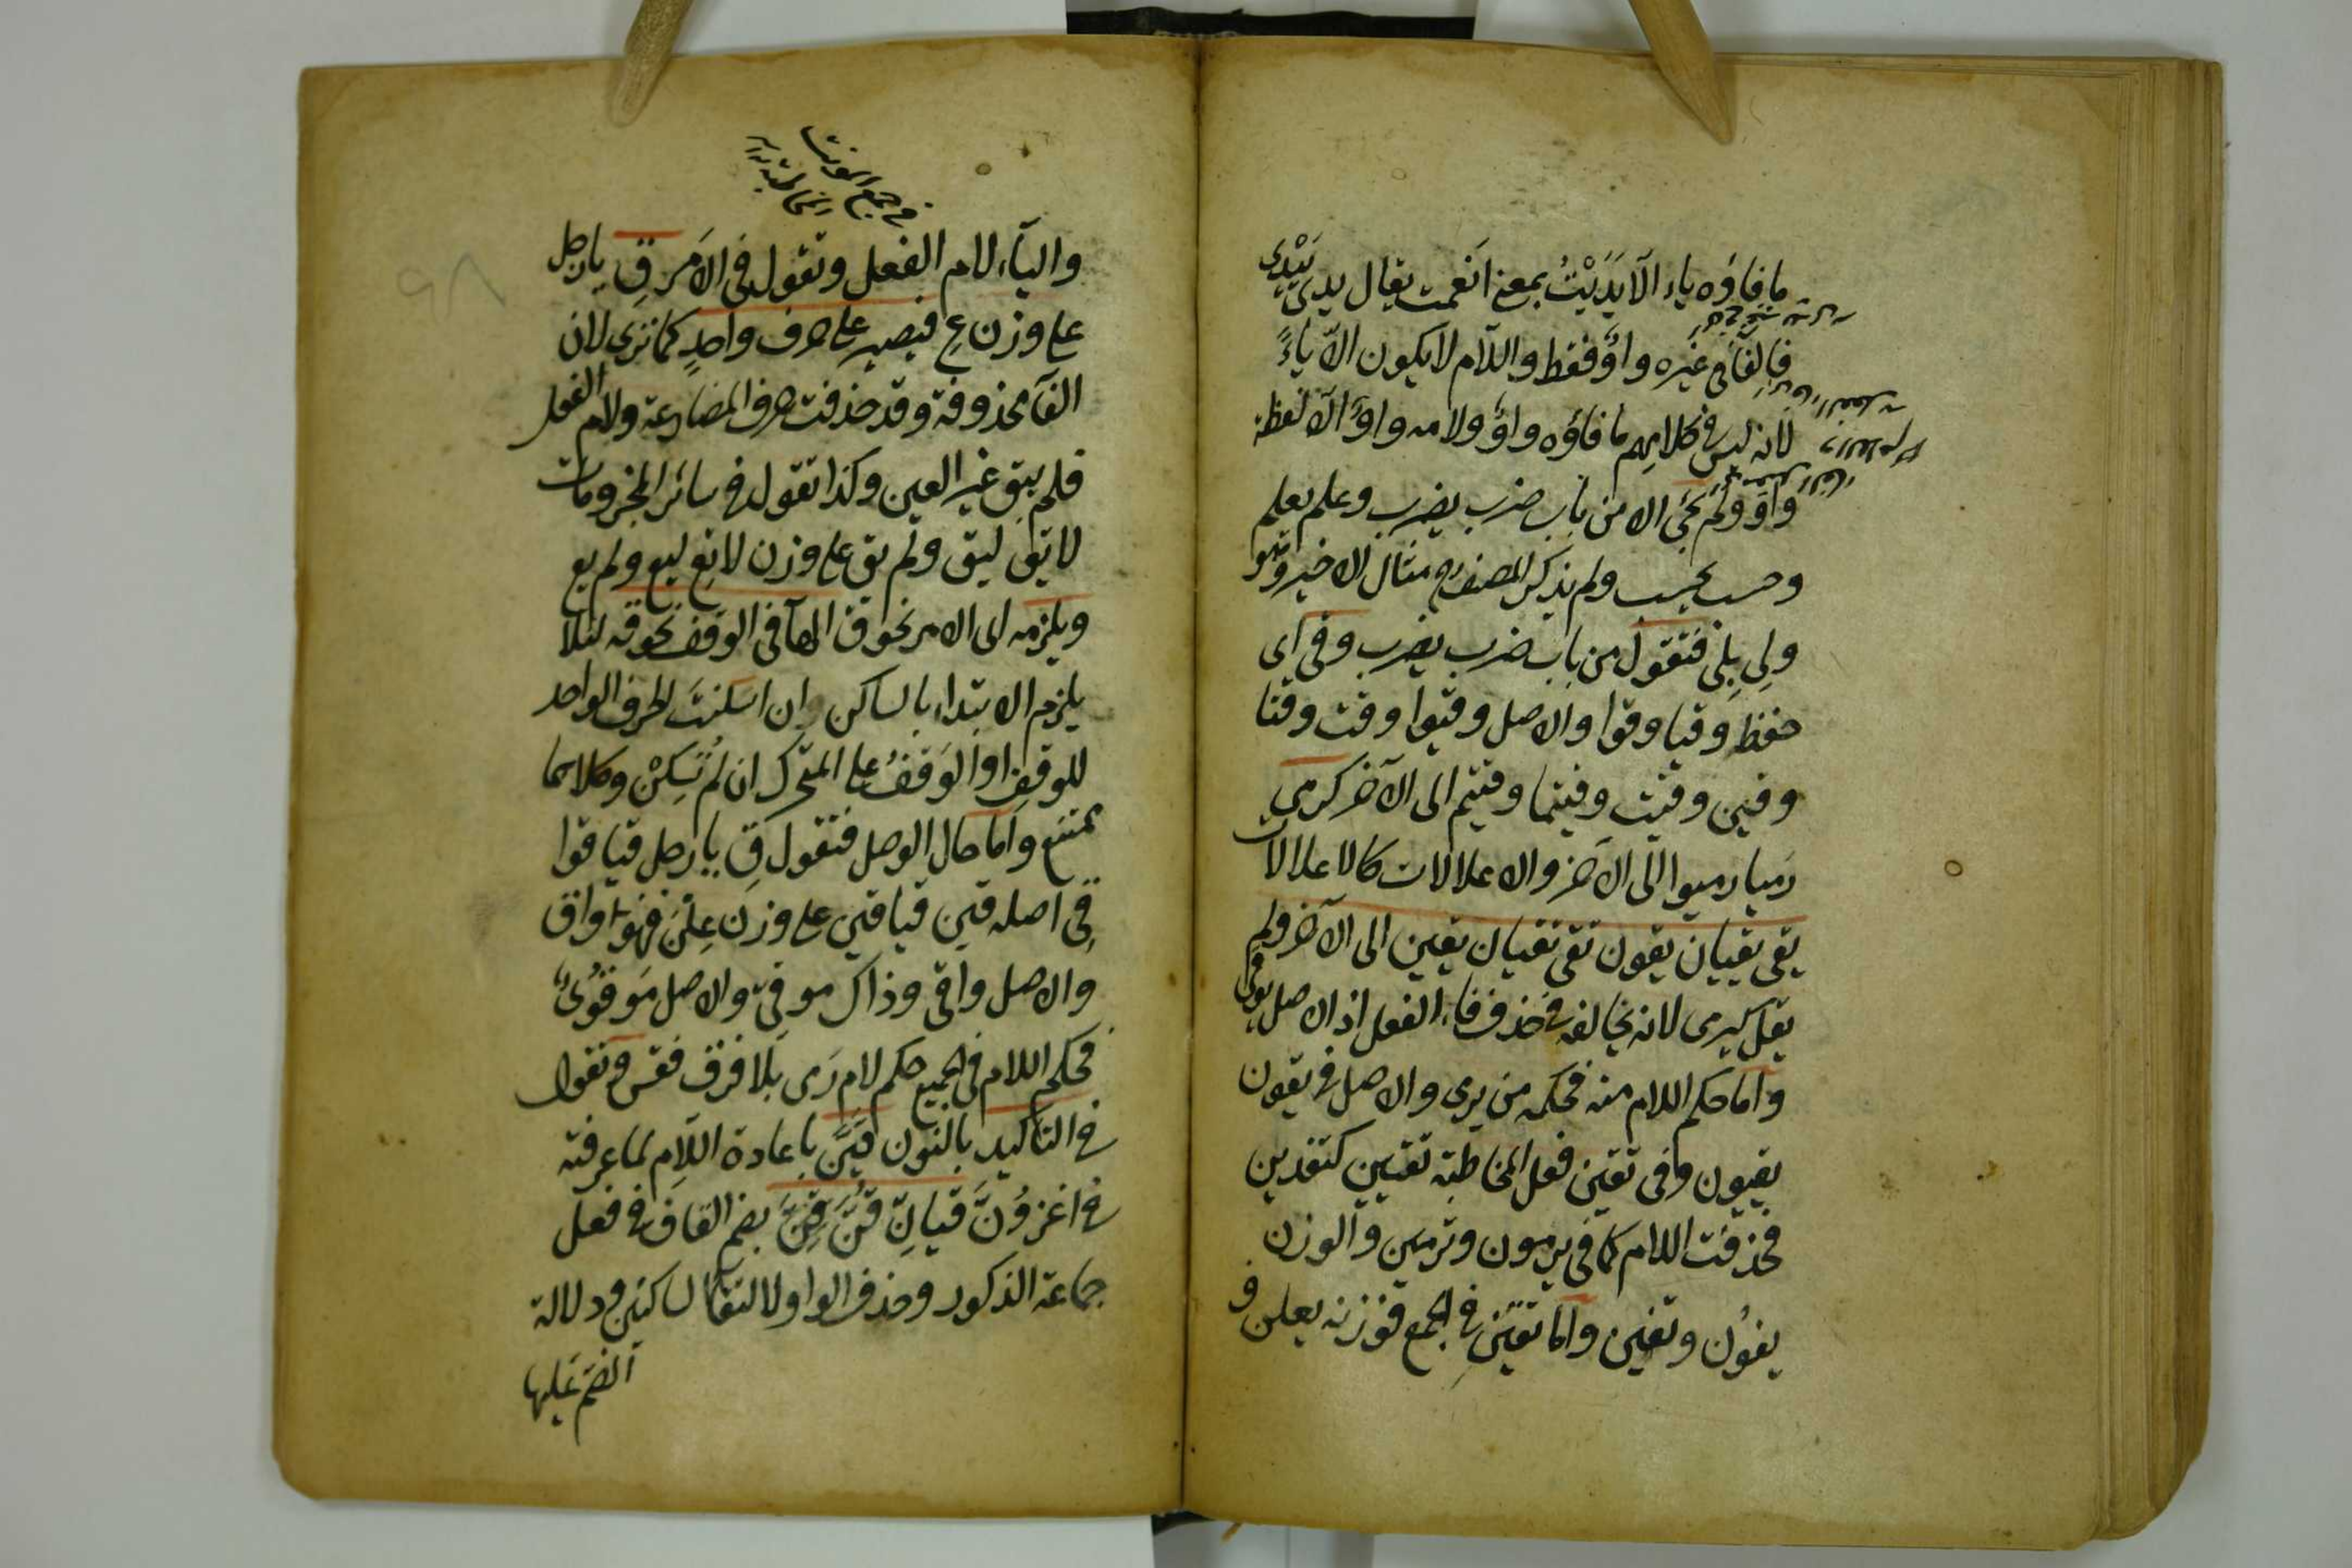 ما فاؤه ياء الا يَدَيْتُ بمعنى انعمت يقال يدى يَيْدِى
فالفآ فى غيره واوٌ فقط واللام لا يكون الا ياءً
لانه ليس فى كلامهم ما فاؤه واوٌ ولامه واوٌ الا لفظة
واو ولم يجئ الا من باب ضرب يضرب وعلم يعلم
وحسب يحسب ولم يذكر المصنف مثال الاخير وهو
ولِى يلِى فتقول من باب ضرب يضرب وقى اى
حفظ وقيا وقوا والاصل وقيوا وقت وقتا
وقين وقيت وقيتما وقيتم الى الآخر كرمى
رميا رميوا الى الآخر والاعلالات كالاعلالات
يقى يقيان يقون تقى تقيان يقين الى الآخر ولم
يقل كيرمى لانه يخالفه فى حذف فاء الفعل اذ الاصل يوقى
واما حكم اللام منه فحكمه من يرمى والاصل فى يقون
يقيون وفى تقين فعل المخاطبة تقيين كتقدين
فحذفت اللام كما فى يرمون وترمين والوزن
يفون وتفين واما تقين فى الجمع فوزنه يعلن و
فى جمع المونث
والياء لام الفعل وتقول فى الامر قِ يا رجل
على وزن عِ فيصير على حرف واحدٍ كما ترى لان
الفآ محذوفة وقد حذفت حرف المضارعة ولام الفعل
فلم يبق غير العين وكذا تقول فى سائر المجزومات
لا تق ليق ولم يق على وزن لا تع ليع ولم يع
ويلزمه اى الامر لحوق الهآ فى الوقف نحو قه لئلا
يلزم الابتداء بالساكن ان اسكنتَ الحرف الواحد
للوقف او الوقفُ على المتحرك ان لم تُسكنْ وكلاهما
ممتنع واما حال الوصل فتقول قِ يا رجل قيا قوا
قِى اصله قيى قيا قين على وزن عِلْنَ فهو واق
والاصل واقى وذاك موقىّ والاصل مَوقُوىٌ
فحكم اللام فى الجميع حكم لام رَمى بلا فرق فقس وتقول
فى التاكيد بالنون قِيَنَّ باعادة اللام لما عرفته
فى اغزُوَنَّ قيانِّ قُنَّ قِنَّ بضم القاف فى فعل
جماعة الذكور وحذف الواو لالتقا الساكنين ودلالة
الضم عليها